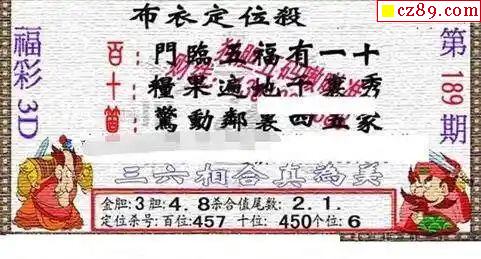 cz89.com
布衣定位殺
福彩3D
第189期
百:門臨五福有一十
十:糧果遍地千裏秀
個:驚動鄰裏四五家
三六相合真為美
金胆:3胆4.8杀合值尾数:2.1.
定位杀号:百位:457 十位:450个位:6